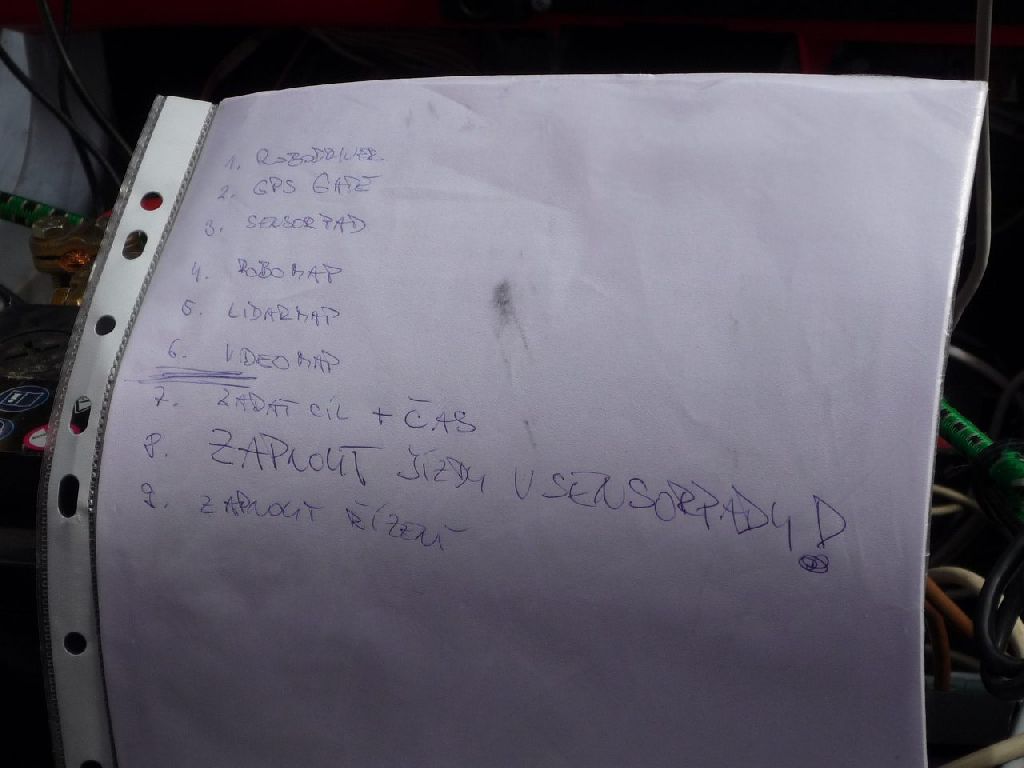 1. ROBODRIVER
2. GPS GATE
3. SENSORPAD
4. ROBOMAP
5. LIDARMAP
6. VIDEOMAP
7. ZADAT CÍL + ČAS
8. ZAPNOUT JÍZDU V SENSORPADU!
9. ZAPNOUT ŘÍZENÍ